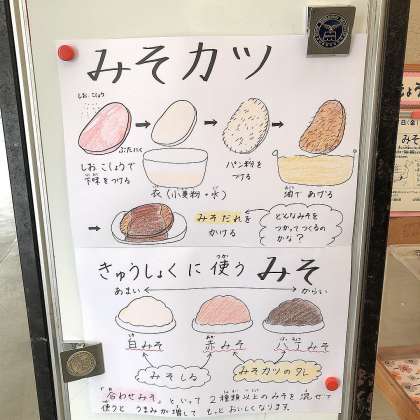 みそカツ
しお こしょう
ぶたにく
しお こしょうで
下味をつける
衣(小麦粉+水)
パン粉を
つける
油で あげる
みそだれを
かける
どんなみそを
つかってつくるの
かな?
きゅうしょくに使うみそ
あまい
からい
白みそ
赤みそ
八丁みそ
みそしる
みそカツのタレ
「合わせみそ」といって2種類以上のみそを混ぜて
使うと うまみが増して もっとおいしくなります。